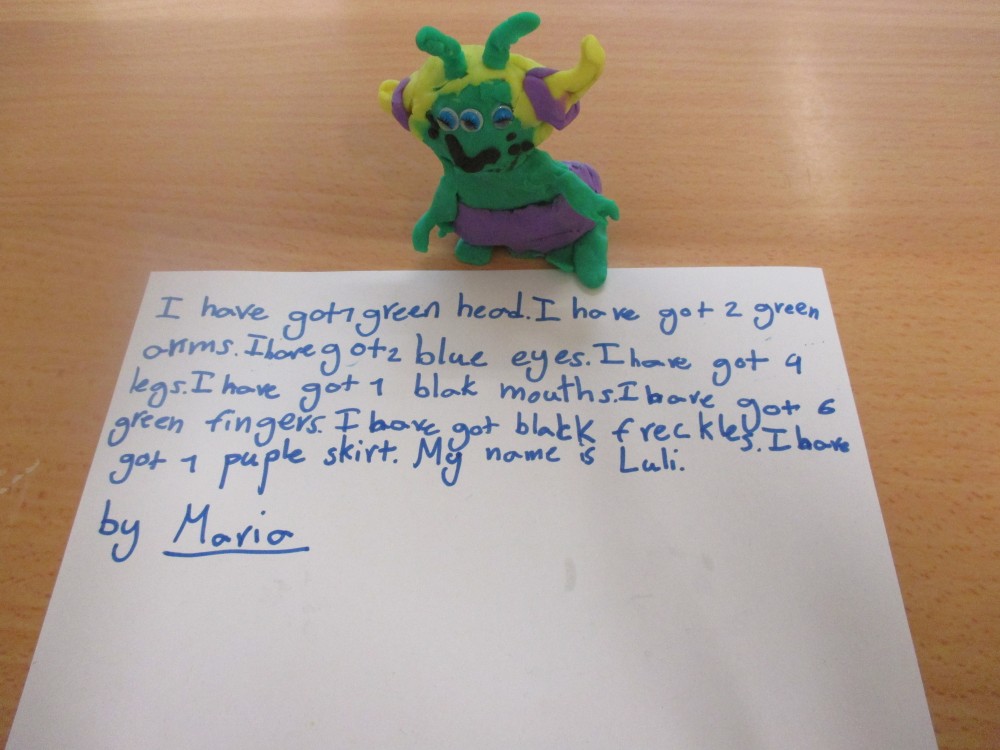 I have got 1 green head. I have got 2 green
arms. I have got 2 blue eyes. I have got 4
legs. I have got 1 blak mouths. I have got 6
green fingers. I have got black freckles. I have
got 1 puple skirt. My name is Luli.
by Maria